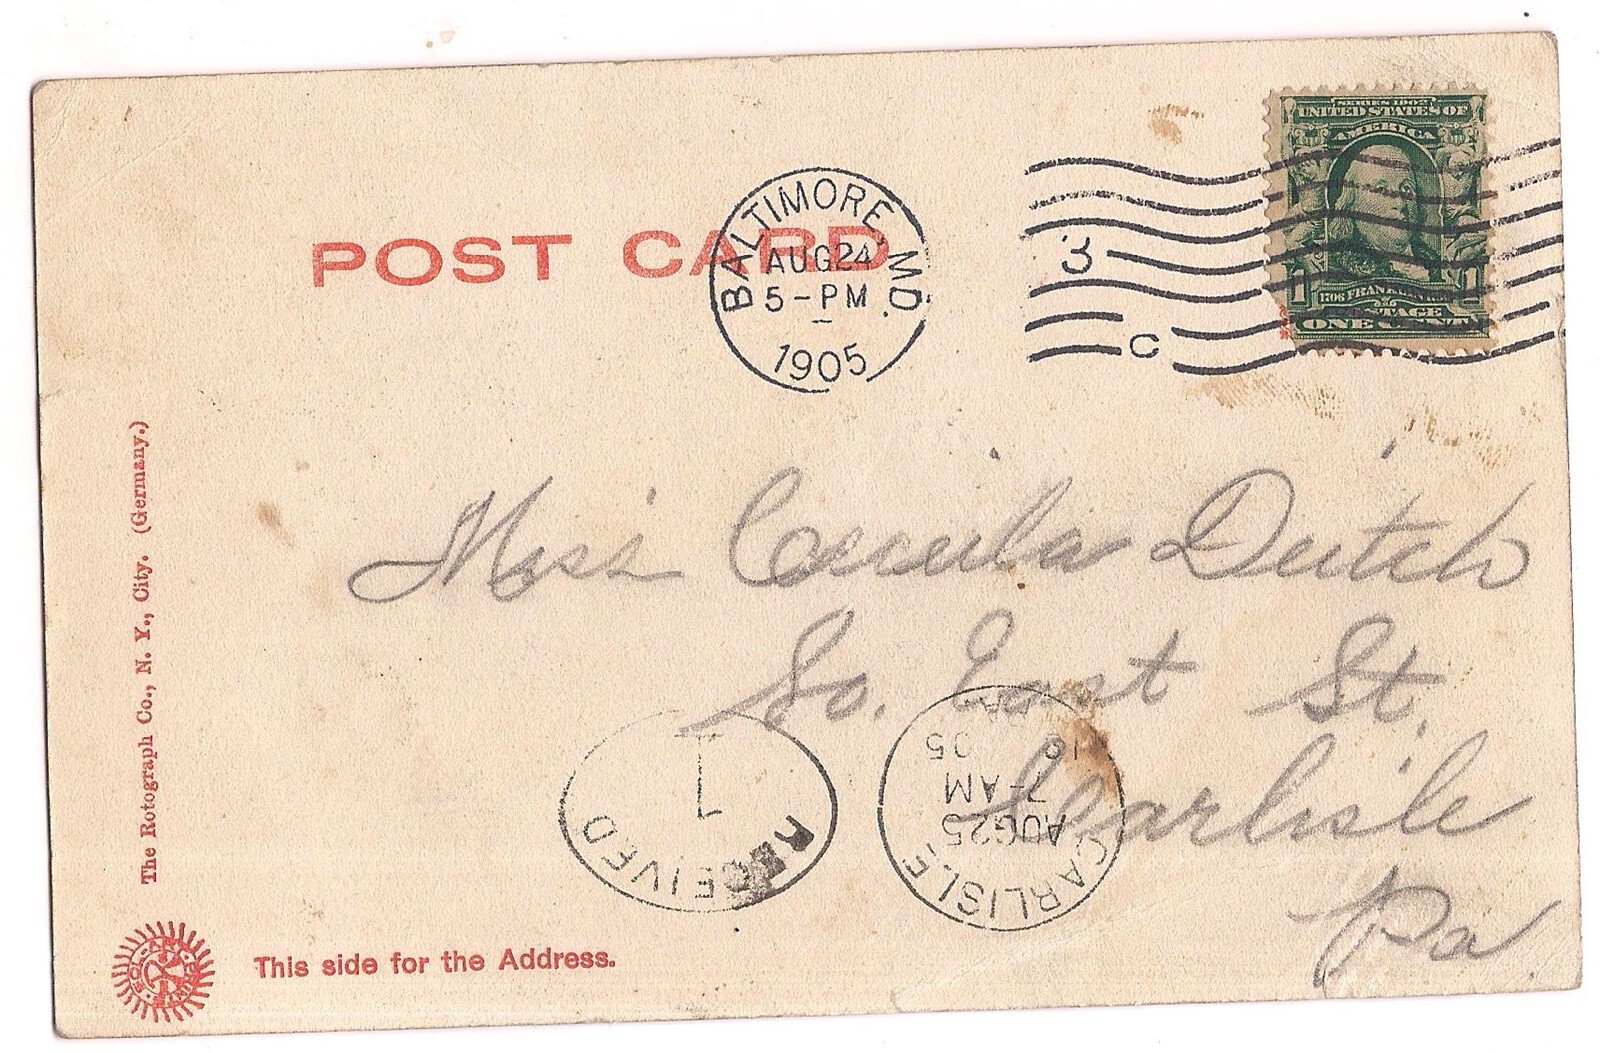 POST CARD
BALTIMORE, MD.
AUG 24
5-PM
1905
3
C
SERIES 1902
UNITED STATES OF
AMERICA
1706 FRANKLIN
1 1
POSTAGE
ONE CENT
Miss Cecula Dutch
So. East St.
Carlisle
Pa.
RECEIVED
1
CARLISLE
AUG 25
7-AM
1905
PA.
The Rotograph Co., N. Y., City. (Germany.)
SOL-ART
This side for the Address.